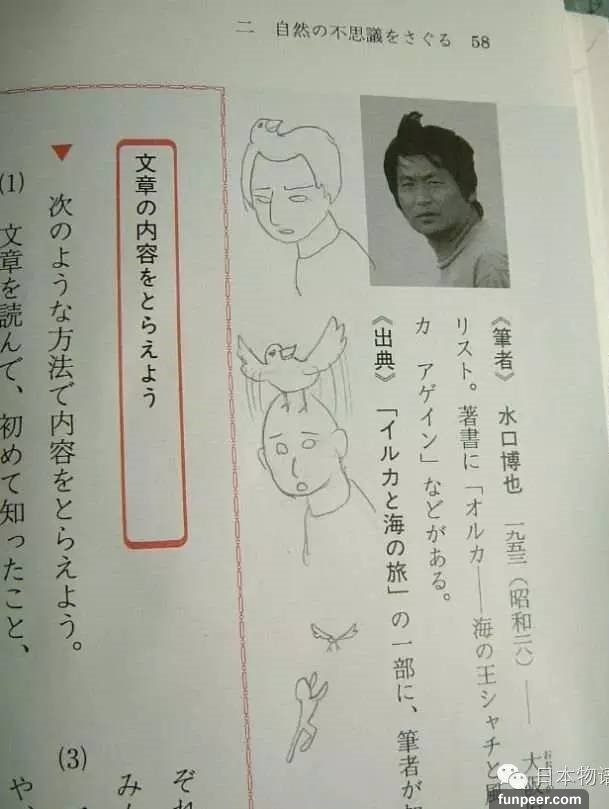 二 自然の不思議をさぐる 58
《筆者》 水口博也 一九五三(昭和二八)——
リスト。著書に「オルカ——海の王シャチと風
カ アゲイン」などがある。
《出典》 「イルカと海の旅」の一部に、筆者が
文章の内容をとらえよう
▼ 次のような方法で内容をとらえよう。
(1) 文章を読んで、初めて知ったこと、
(3) ぞれ
みん
や、
日本物语
funpeer.com